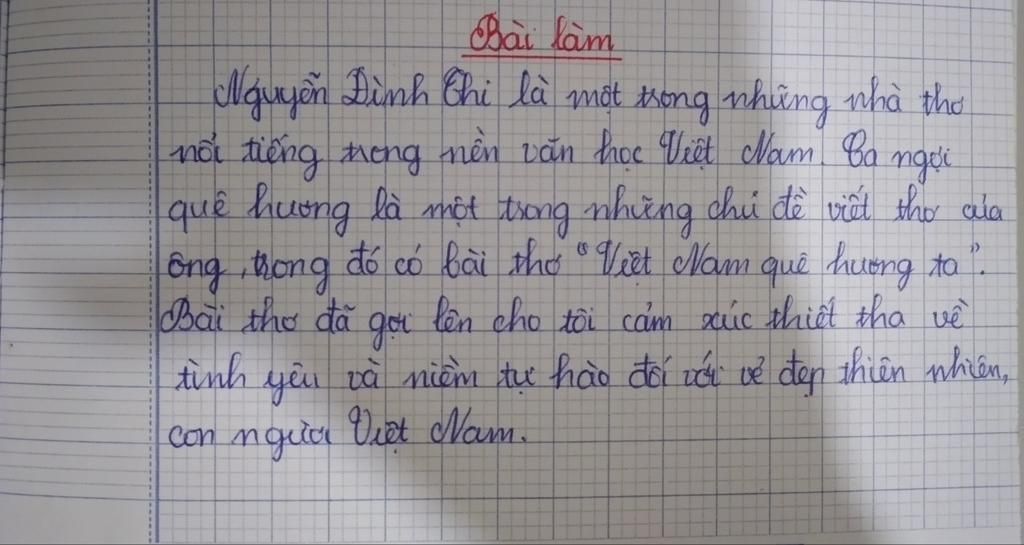 Bài làm
Nguyễn Đình Thi là một trong những nhà thơ
nổi tiếng trong nền văn học Việt Nam. Ca ngợi
quê hương là một trong những chủ đề viết thơ của
ông, trong đó có bài thơ "Việt Nam quê hương ta".
Bài thơ đã gợi lên cho tôi cảm xúc thiết tha về
tình yêu và niềm tự hào đối với vẻ đẹp thiên nhiên,
con người Việt Nam.